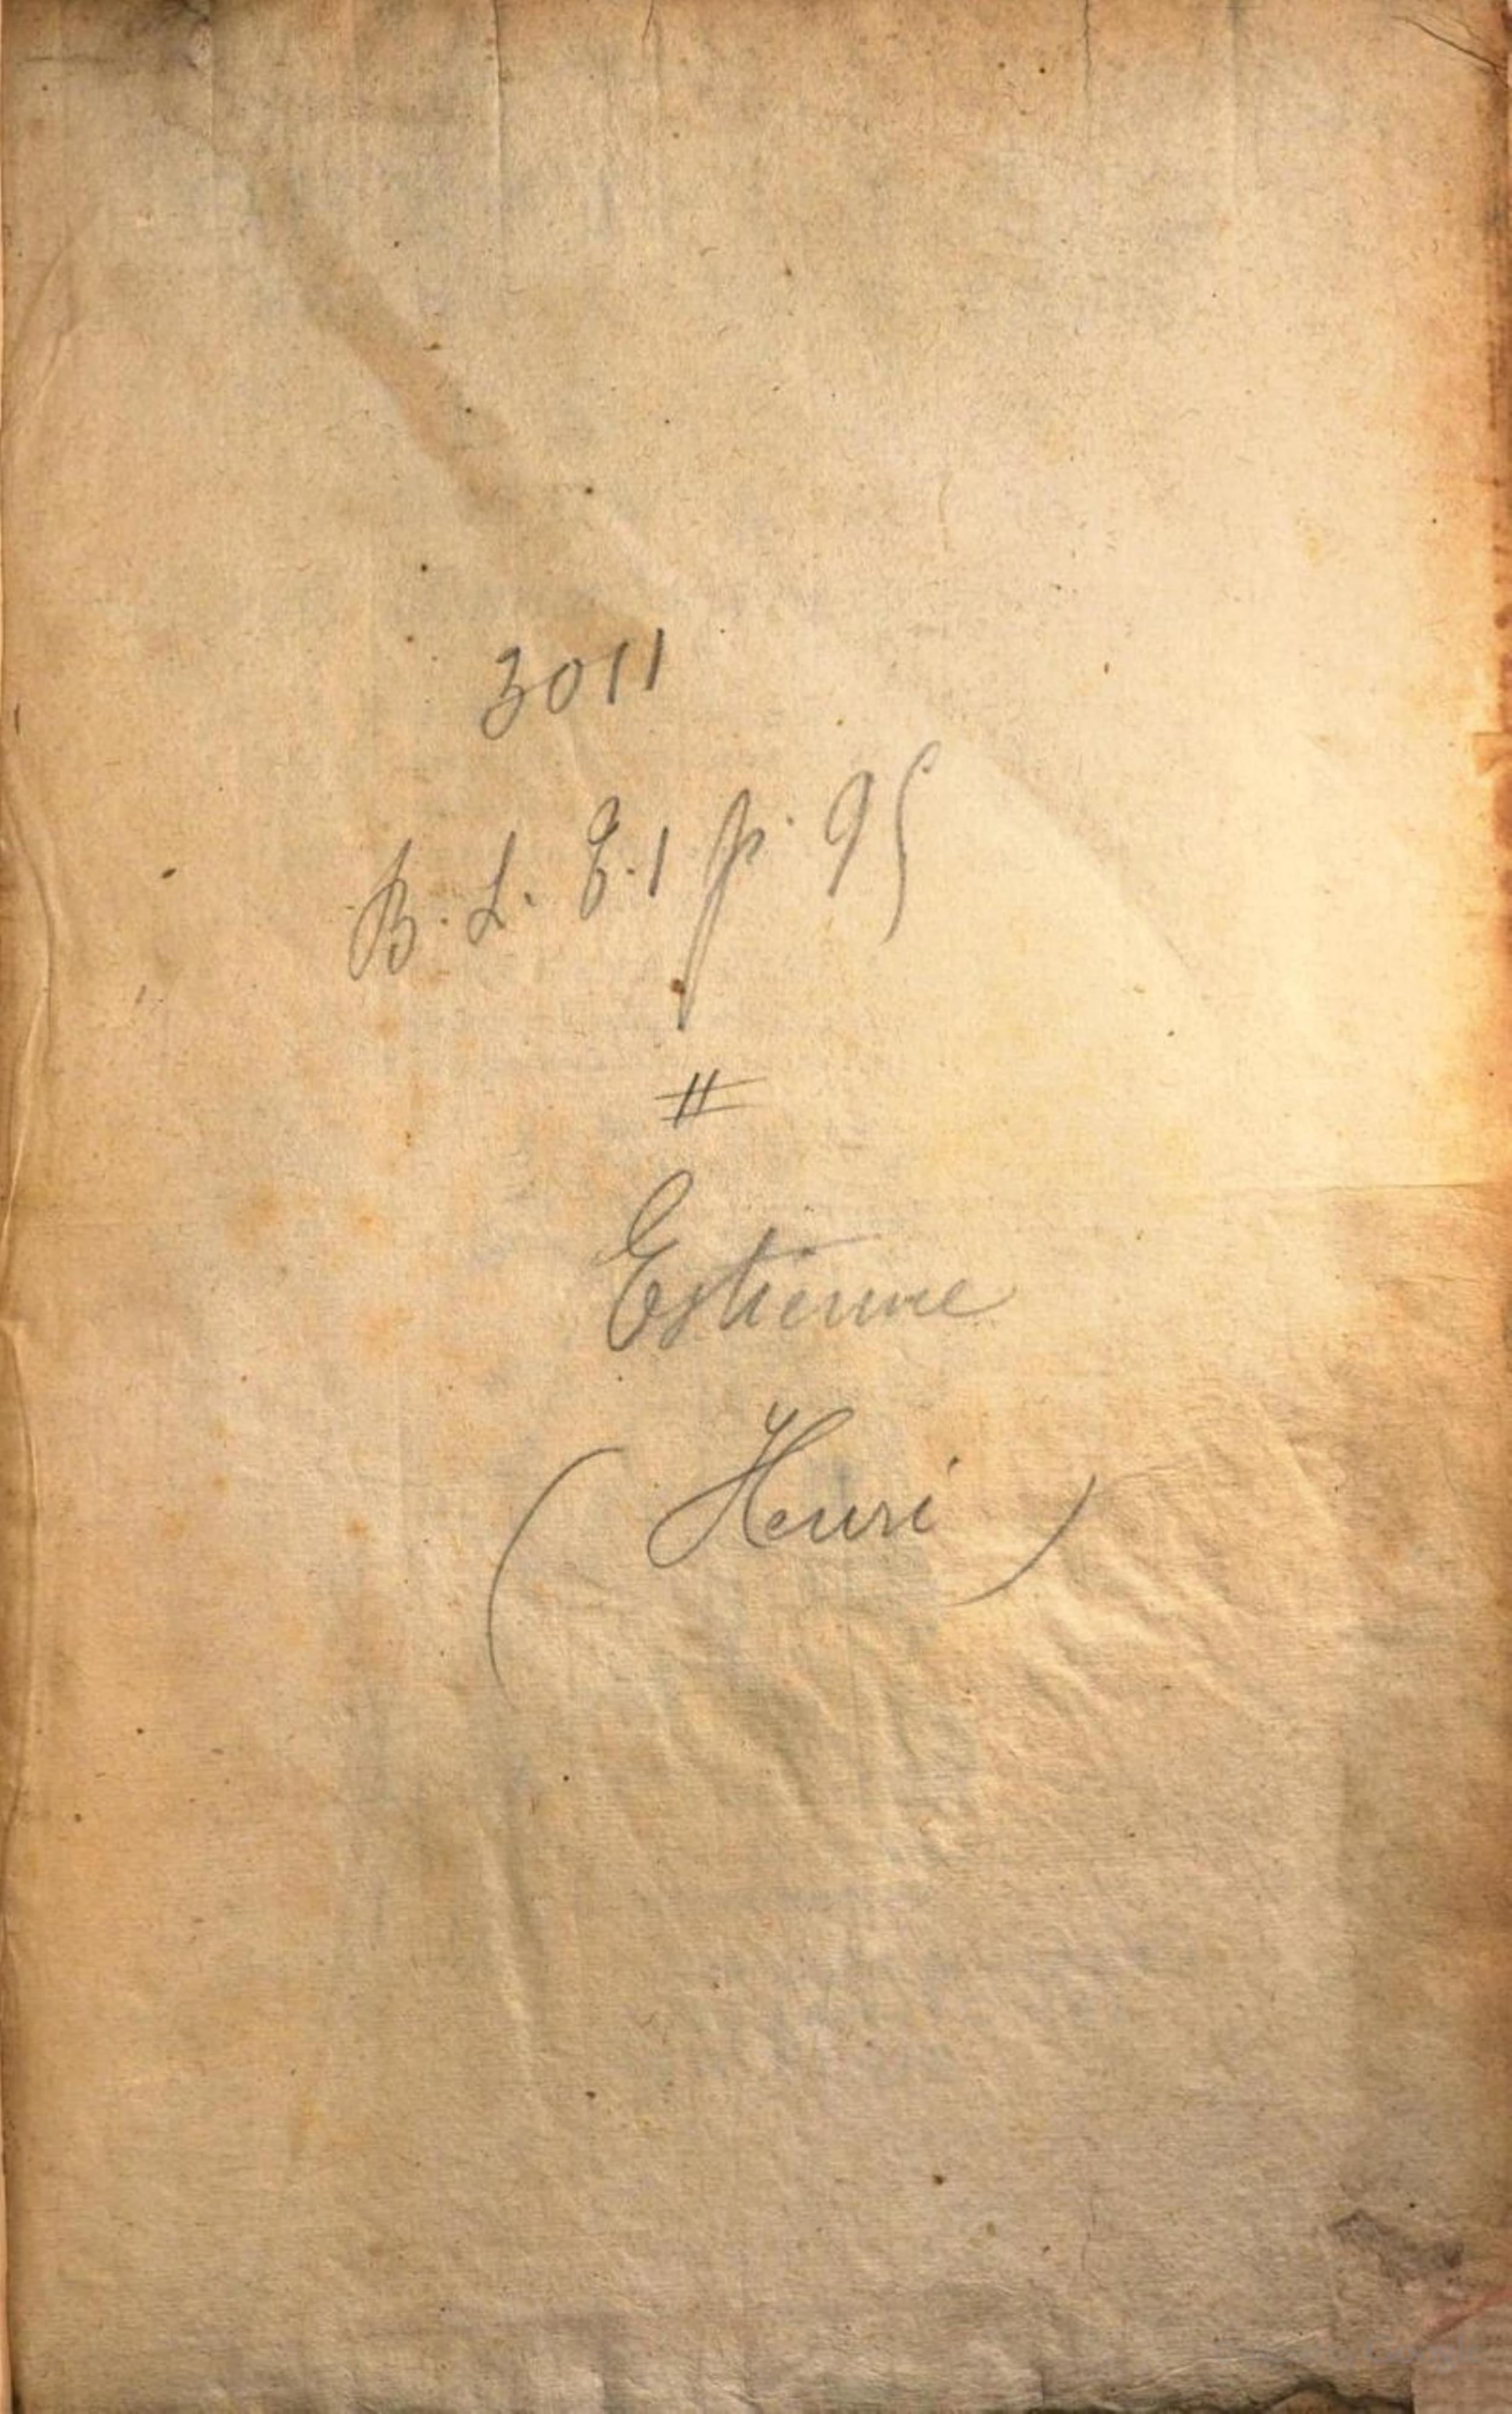 3011
B. L. E.1 p. 95
#
Estienne
( Henri )